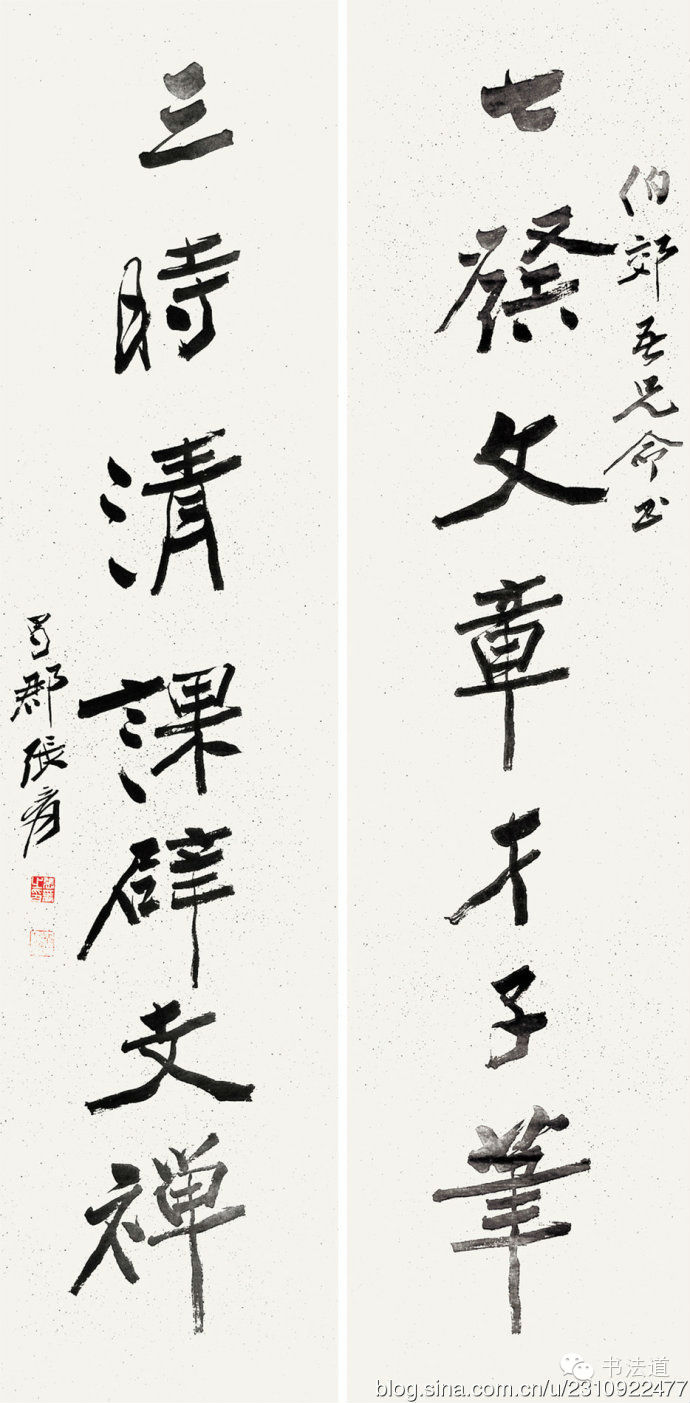 伯郊吾兄命書
七發文章才子筆
三時清課辟支禪
蜀郡張爰
书法道
blog.sina.com.cn/u/2310922477